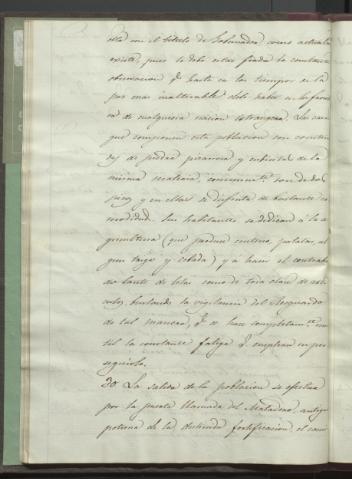 esta con el titulo de Gobernador, como actualm
existe, pues se debe estar fijada la constante
observacion q. hasta en los tiempos de la
paz mas inalterable debe haber en las fuerzas
de cualquiera nacion estrangera. Las casas
que componen esta poblacion son construi
das de piedra pizarrosa y cubiertas de la
misma materia, comunm.te son de dos
pisos y en ellas se disfruta de bastante co
modidad. Sus habitantes se dedican á la a
gricultura (que produce centeno, patatas, al
gun trigo y cebada) y á hacer el contraban
do tanto de telas como de toda clase de arti
culos, burlando la vigilancia del Resguardo
de tal manera, q. se hace completam.te inu
til la constante fatiga q. emplean en per
seguirlo.
20 La salida de la poblacion se efectua
por la puerta llamada del Matadero, antigua
poterna de la destruida fortificacion, el cami